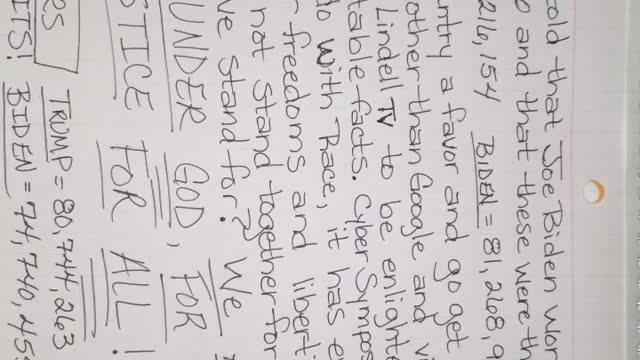 told that Joe Biden won
o and that these were th
216,154 BIDEN = 81,268,9
ntry a favor and go get
other than Google and v
Lindell TV to be enlighte
table facts. Cyber Sympos
do with Race, it has e
freedoms and liberti
not stand together for
ve stand for? We
UNDER GOD, FOR
STICE FOR ALL!
RS TRUMP = 80,744,263
ITS! BIDEN = 74,740,45